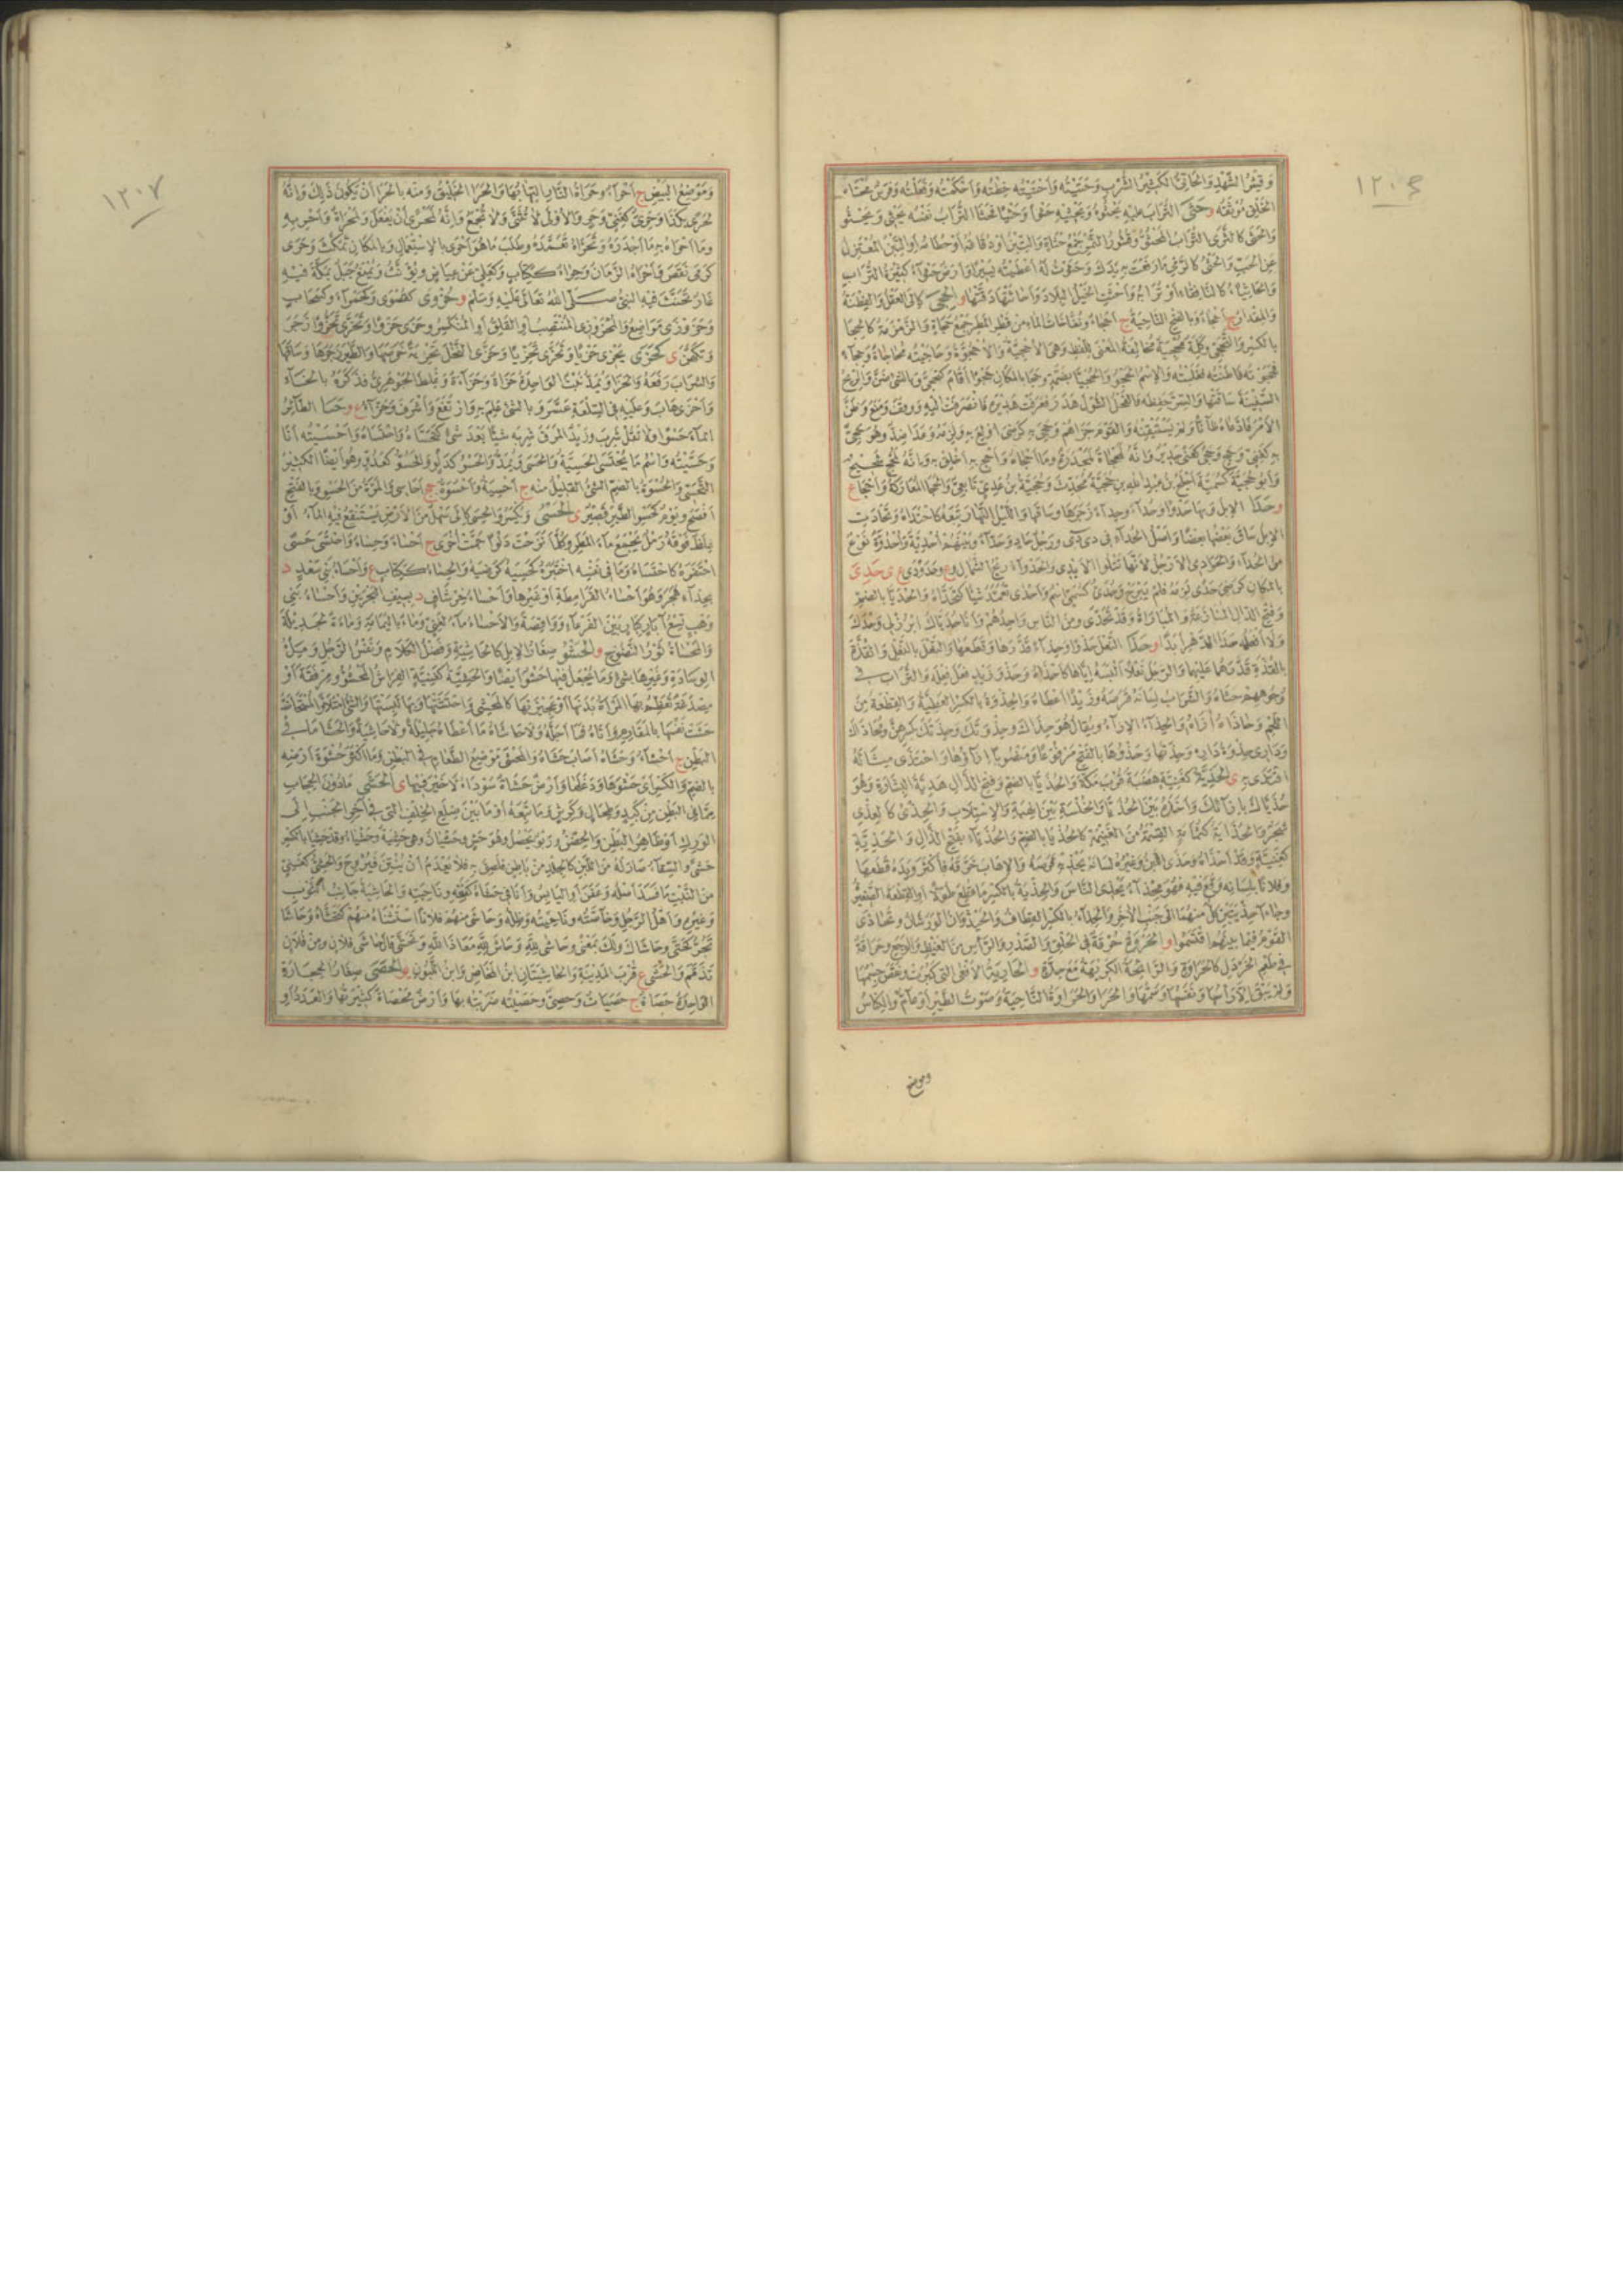 ١٢٠٦
وقشر الشهد والحاتي الكثير الشرب وحتيته وأحتيته خطته وأحكمته وفتلته وفرس محتاء
الخلق موثقه وحثى التراب عليه يحثوه ويحثيه حثوا وحثيا فحثا التراب نفسه يحثى ويحثو
والحثى كالثرى التراب المحثو وقشور التمر جمع حثاة والتبن أو دقاقه أو حطامه أو التبن المعتزل
عن الحب والحثى كالرمي ما رفعت به يدك وحثوت له أعطيته يسيرا وأرض حثواء كثيرة التراب
والحاثياء كالنافقاء أو ترابه وأحثت الخيل البلاد وأحاثتها دقتها والحجى كإلى العقل والفطنة
والمقدار ج أحجاء وبالفتح الناحية ج أحجاء ونفاخات الماء من قطر المطر جمع حجاة والزمزمة كالحجا
بالكسر والتحجي وكلمة محجية مخالفة المعنى للفظ وهي الأحجية والأحجوة وحاجيته محاجاة وحجاء
فحجوته فاطنته فغلبته والاسم الحجوى والحجيا بضمة وحجا بالمكان حجوا أقام كتحجى وبالشيء ضن والريح
السفينة ساقتها والسر حفظه والفحل الشول هدر فعرفت هديره فانصرفت إليه ووقف ومنع وظن
الأمر فادعاه ظانا ولم يستيقنه والقوم جزاهم وحجي به كرضي أولع به ولزمه وعدا ضد وهو حجي
به كغني وحج وحجى كفتى جدير وإنه لمحجاة لمجدرة وما أحجاه وأحج به أخلق به وإنه لحج شحيح
وأبو حجية كسمية أجلح بن عبد الله بن حجية محدث وحجية بن عدي تابعي والحجا المعاركة وأحجاء ع
وحدا الإبل وبها حدوا وحداء وحداء زجرها وساقها والليل النهار تبعه كاحتداه وتحادت
الإبل ساق بعضها بعضا وأصل الحداء في دى دى ورجل حاد وحداء وبينهم أحدية وأحدوة نوع
من الحداء والحوادي الأرجل لأنها تتلو الأيدي والحدواء ريح الشمال وع وحدودى ع ى حدي
بالمكان كرضي حدى لزمه فلم يبرح وحدي كسمي اسم وأحدى تعمد شيئا كتحداه والحديا بالضم
وفتح الدال المنازعة والمباراة وقد تحدى ومن الناس واحدهم وأنا حدياك ابرز لي وحدك
ولا أفعله حدا الدهر أبدا وحذا النعل حذوا وحذاء قدرها وقطعها والنعل بالنعل والقذة
بالقذة قدرهما عليهما والرجل نعلا ألبسه إياها كأحذاه وحذو زيد فعل فعله والتراب في
وجوههم حثاه والشراب لسانه قرصه وزيدا أعطاه والحذوة بالكسر العطية والقطعة من
اللحم وحاذاه آزاه والحذاء الإزاء ويقال هو حذاءك وحذوتك وحذتك بكسرهن ومحاذاك
وداري حذوة داره وحذتها وحذوها بالفتح مرفوعا ومنصوبا إزاؤها واحتذى مثاله
اقتدى به ى الحذية كغنية هضبة قرب مكة والحذيا بالضم وفتح الذال هدية البشارة وهو
حذياك بإزائك وأخذه بين الحذيا والخلسة بين الهبة والاستلاب والحذى كالعذي
شجر والحذاية كثمامة القسمة من الغنيمة كالحذيا بالضم والحذياء بفتح الذال والحذية
كغنية وقد أحذاه وحذى اللبن وغيره لسانه يحذيه قرصه والإهاب خرقه فأكثر ويده قطعها
وفلانا بلسانه وقع فيه فهو محذاء يحذي الناس والحذية بالكسر ما قطع طولا أو القطعة الصغيرة
وجاءا حذيتين كل منهما إلى جنب الآخر والحذاء بالكسر القطاف والحيذوان الورشان وتحاذى
القوم فيما بينهم اقتسموا و الحروة حرقة في الحلق والصدر والرأس من الغيظ والوجع وحرافة
في طعم الخردل كالحراوة والرائحة الكريهة مع حدة و الحارية الأفعى التي كبرت ونقص جسمها
ولم يبق إلا رأسها ونفسها وسمها والحرا والحراة الناحية وصوت الطير أو عام والكناس
وموضع
١٢٠٧
وموضع البيض ج أحراء وحراة النار التهابها والحرا الخليق ومنه بالحرا أن يكون ذلك وإنه
لحرى بكذا وحري كغني وحر والأولى لا تثنى ولا تجمع وإنه لمحرى أن يفعل ولمحراة وأحر به
وما أحراه به ما أجدره وتحراه تعمده وطلب ما هو أحرى بالاستعمال وبالمكان تمكث وحرى
كرمى نقص وأحراه الزمان وحراء ككتاب وكعلى عن عياض ويؤنث ويمنع جبل بمكة فيه
غار تحنث فيه النبي صلى الله تعالى عليه وسلم وحزوى كقصوى وكحمراء وكسحاب
وحزوزى مواضع والمحزوزي المنتصب أو القلق أو المنكسر وحزى حزوا وتحزى تحزوا زجر
وتكهن ى كحزى يحزي حزيا وتحزى تحزيا وحزى النخل تحزية خرصها والطير زجرها وساقها
والسراب رفعه والحزا ويمد نبت الواحدة حزاة وحزاءة وغلط الجوهري فذكره بالخاء
وأحزى هاب وعليه في السلعة عسر وبالشيء علم به وارتفع وأشرف وحزاء ع وحسا الطائر
الماء حسوا ولا تقل شرب وزيد المرق شربه شيئا بعد شيء كتحساه واحتساه وأحسيته أنا
وحسيته واسم ما يحتسى الحسية والحسى ويمد والحسو كدلو والحسو كعدو وهو أيضا الكثير
التحسي والحسوة بالضم الشيء القليل منه ج أحسية وأحسوة جج أحاسي والمرة من الحسو وبالفتح
أفصح ويوم كحسو الطير قصير ى الحسي ويكسر والحسى كإلى سهل من الأرض يستنقع فيه الماء أو
غلظ فوقه رمل يجمع ماء المطر وكلما نزحت دلوا جمت أخرى ج أحساء وحساء واحتسى حسى
احتفره كاحتساه وما في نفسه اختبره كحسيه كرضيه والحساء ككتاب ع وأحساء بني سعد د
بحذاء هجر وهو أحساء القرامطة أو غيرها وأحساء خرشاف د بسيف البحرين وأحساء بني
وهب تسع آبار كبار بين القرعاء وواقصة والأحساء ماء لغني وماء باليمامة وماءة لجديلة
والمحساة ثور النضوح و الحشو صغار الإبل كالحاشية وفضل الكلام ونفس الرجل وملء
الوسادة وغيرها بشيء وما يجعل فيها حشو أيضا والحشية كغنية الفراش المحشو ومرفقة أو
مصدغة تعظم بها المرأة بدنها أو عجيزتها كالمحشى واحتشتها وبها لبستها والشيء امتلأ والمستحاضة
حشت نفسها بالمفارم وأتاه فما أجله ولا حاشاه ما أعطاه جليلة ولا حاشية والحشا ما في
البطن ج أحشاء وحشاه أصاب حشاه والمحشى موضع الطعام في البطن وما أكثر حشوة أرضه
بالضم والكسر أي حشوها ودغلها وأرض حشاة سوداء لا خير فيها ى الحشي ما دون الحجاب
مما في البطن من كبد وطحال وكرش وما تبعه أو ما بين ضلع الخلف التي في آخر الجنب إلى
الورك أو ظاهر البطن والحضن وربو يحصل وهو حش وحشيان وهي حشية وحشياء وقد حشيا بالكسر
حشى والسقاء صار له من اللبن كالجلد من باطن فلصق به فلا يعدم أن ينتن فيروح والحشي كغني
من النبت ما فسد أصله وعفن أو اليابس وأنا في حشاه كنفه وناحيته والحاشية جانب الثوب
وغيره وأهل الرجل وخاصته وناحيته وظله وحاشى منهم فلانا استثناه منهم كتحشاه وحاشا
تجر كحتى وحاشاك ولك بمعنى وحاشى لله وحاش لله معاذ الله وتحشى قال حاشى فلان ومن فلان
تذمم والحشى ع قرب المدينة والحاشيتان ابن المخاض وابن اللبون و الحصى صغار الحجارة
الواحدة حصاة ج حصيات وحصي وحصيته ضربته بها وأرض محصاة كثيرتها والعدد أو